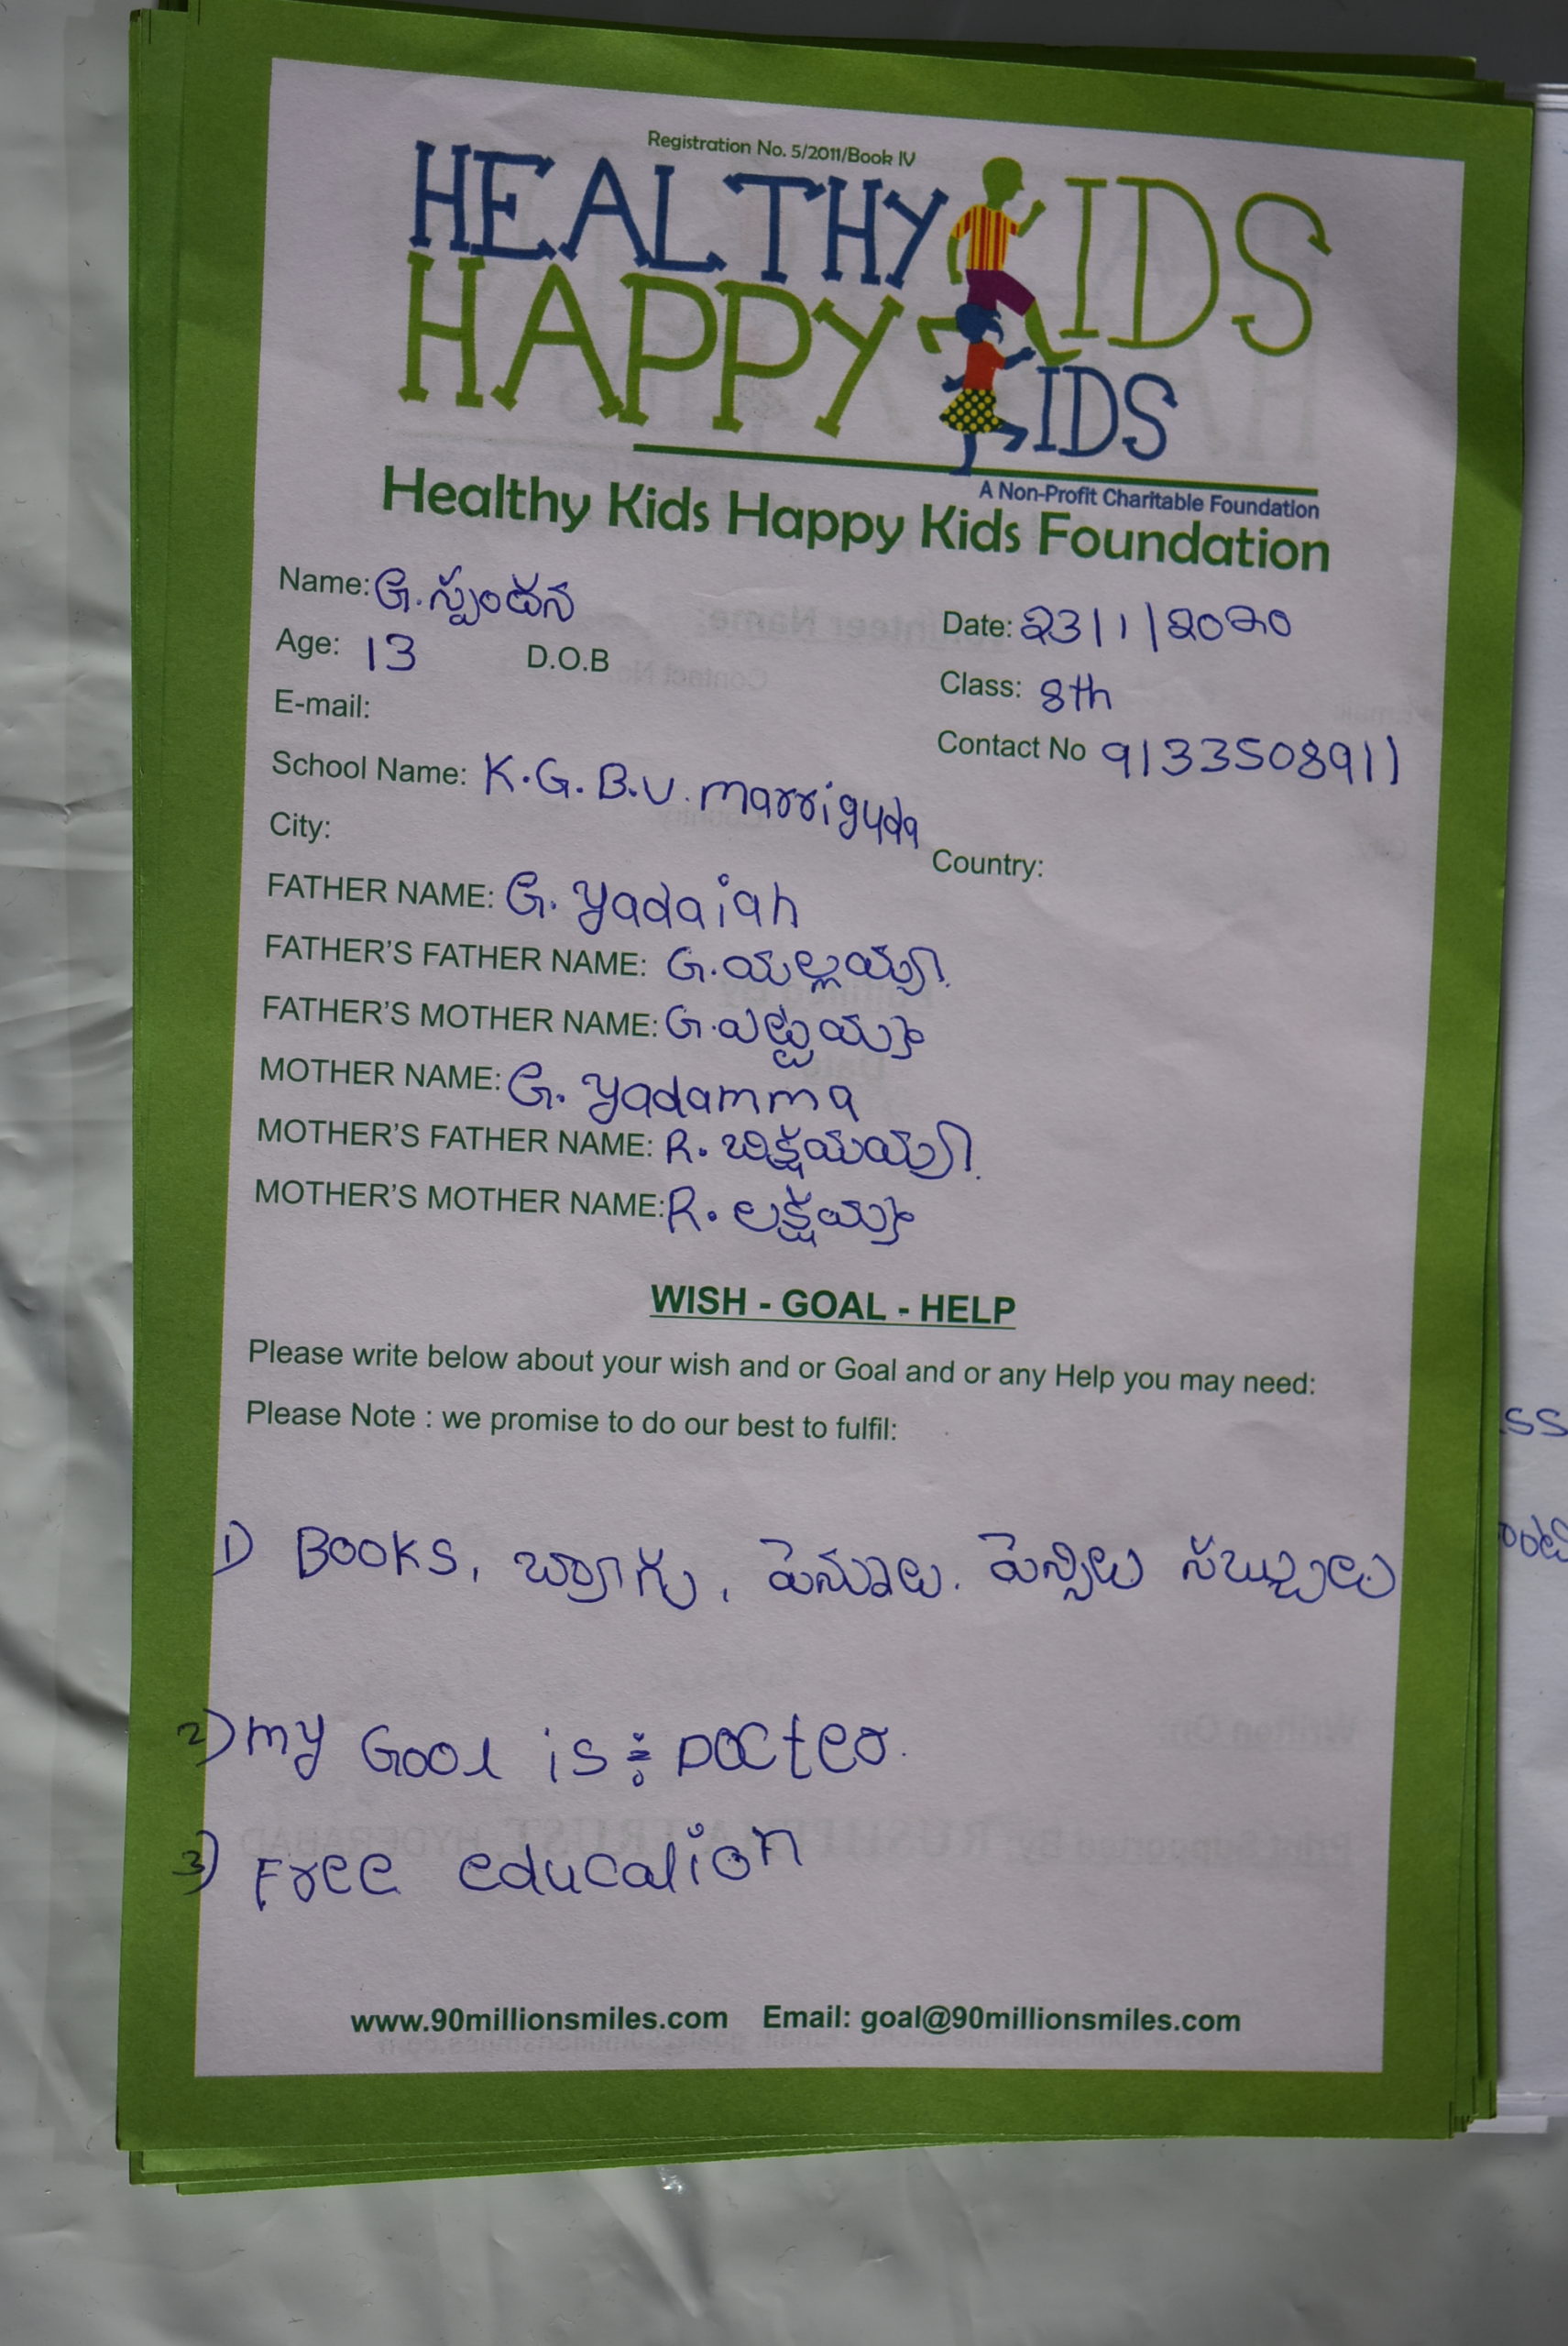 Registration No. 5/2011/Book IV
HEALTHY KIDS
HAPPY KIDS
A Non-Profit Charitable Foundation
Healthy Kids Happy Kids Foundation
Name: G. స్పందన
Date: 23/1/2020
Age: 13 D.O.B
Class: 8th
E-mail:
Contact No 9133508911
School Name: K.G.B.V. marriguda
City:
Country:
FATHER NAME: G. yadaiah
FATHER'S FATHER NAME: G. యల్లయ్య
FATHER'S MOTHER NAME: G.
MOTHER NAME: G. yadamma
MOTHER'S FATHER NAME: R. బిక్షమయ్య
MOTHER'S MOTHER NAME: R. లక్షమ్మ
WISH - GOAL - HELP
Please write below about your wish and or Goal and or any Help you may need:
Please Note : we promise to do our best to fulfil:
1) Books, బ్యాగు, పెనూలు. పెన్సిలు సబుబ్బలు
2) my Gool is : Docter.
3) Free education
www.90millionsmiles.com Email: goal@90millionsmiles.com